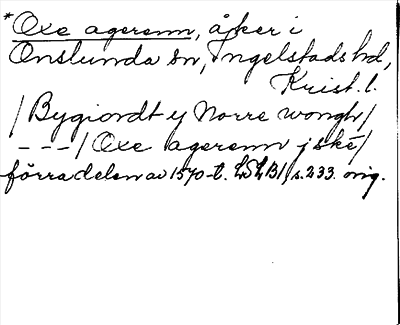 *Oxe agerenn, åker i
Onslunda sn, Ingelstads hd,
Krist. l.
/Bygiordt y Norre wongh/
---/Oxe agerenn j ske/
förra delen av 1570-t. LSLB1, s. 233. orig.